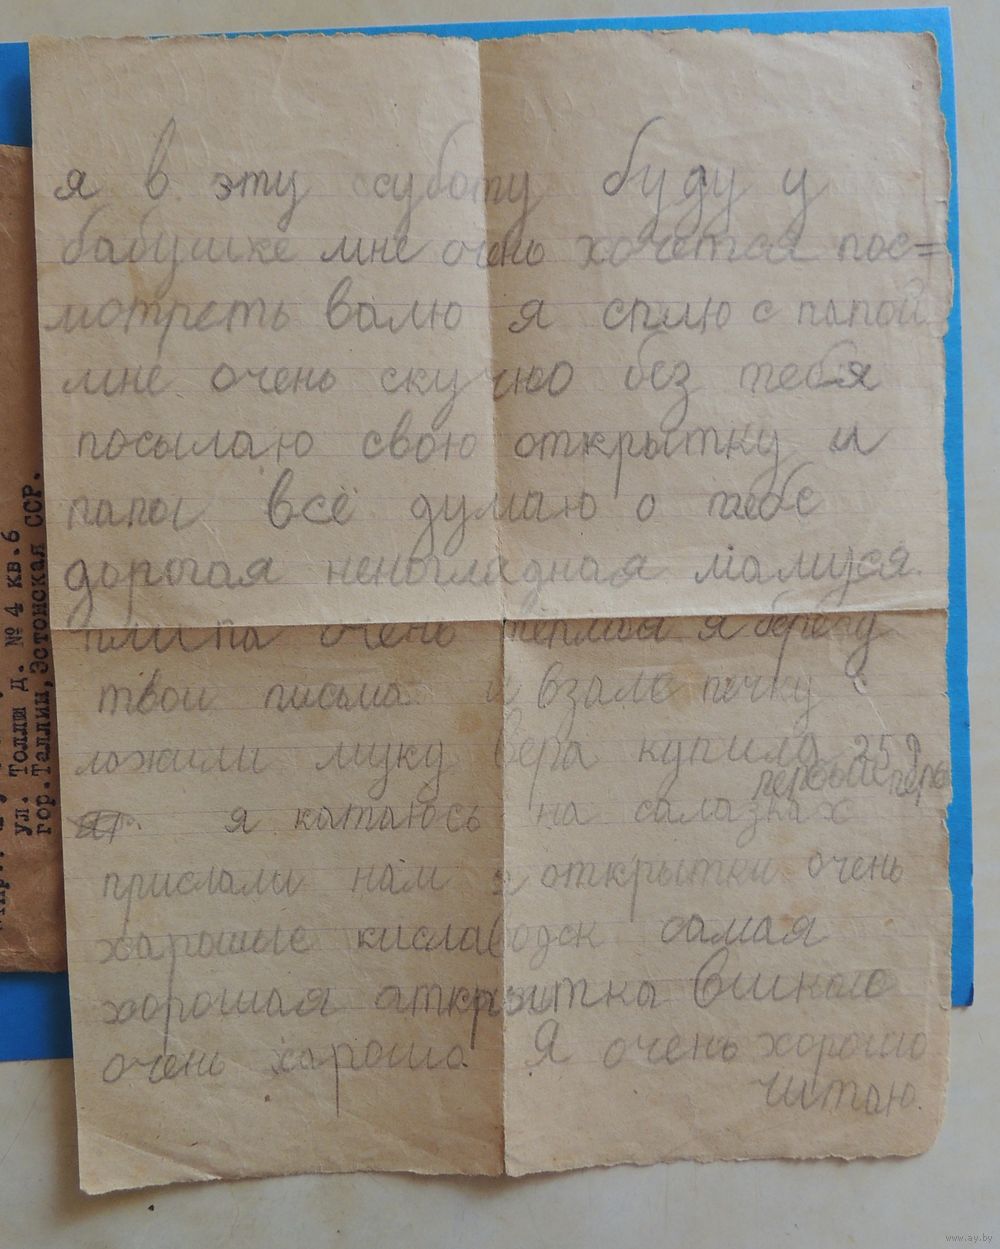 я в эту ссуботу буду у
бабушке мне очень хочется пос=
мотреть валю я сплю с папой
мне очень скучюо без тебя
посылаю свою открытку и
папы всё думаю о тебе
дорогая неногладная мамуся.
плипа очень тёплая я берегу
твои письма. и взале печку
ложили муку вера купила 25 д
первые перь
я катаюсь на салазках
прислали нам открытки очень
харошые киславодск самая
хорошая аткрытка вшкале
очень харошо. Я очень хорошо
читаю.
ул. Толли д. № 4 кв.6
гор.Таллин,Эстонская ССР.
www.ay.by